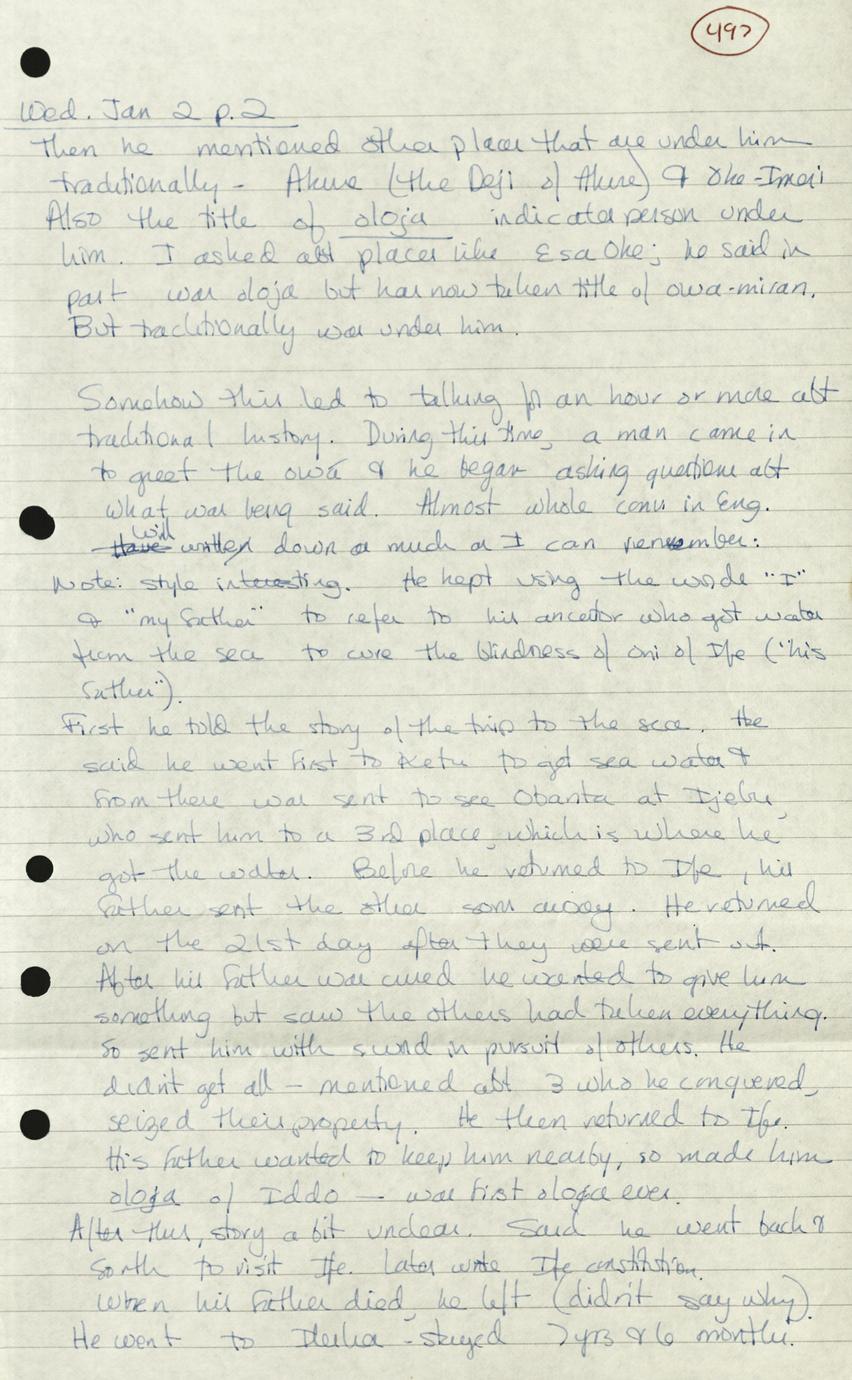 497
Wed. Jan 2 p.2
Then he mentioned other places that are under him
traditionally - Akure (the Deji of Akure) & Oke-Imesi
Also the title of oloja indicates person under
him. I asked abt places like Esa Oke; he said in
past was oloja but has now taken title of owa-miran.
But traditionally was under him.
Somehow this led to talking for an hour or more abt
traditional history. During this time, a man came in
to greet the owa & he began asking questions abt
what was being said. Almost whole conv in Eng.
Will
Have written down as much as I can remember:
Note: style interesting. He kept using the words "I"
& "my father" to refer to his ancestor who got water
from the sea to cure the blindness of oni of Ife ("his
father").
First he told the story of the trip to the sea. He
said he went first to Ketu to get sea water &
from there was sent to see Obanta at Ijebu,
who sent him to a 3rd place, which is where he
got the water. Before he returned to Ife, his
father sent the other sons away. He returned
on the 21st day after they were sent out.
After his father was cured he wanted to give him
something but saw the others had taken everything.
So sent him with sword in pursuit of others. He
didn't get all - mentioned abt 3 who he conquered,
seized their property. He then returned to Ife.
His father wanted to keep him nearby, so made him
oloja of Iddo - was first oloja ever.
After this, story a bit unclear. Said he went back &
forth to visit Ife. Later wrote Ife constitution.
When his father died, he left (didn't say why).
He went to Ilesha - stayed 7 yrs & 6 months.